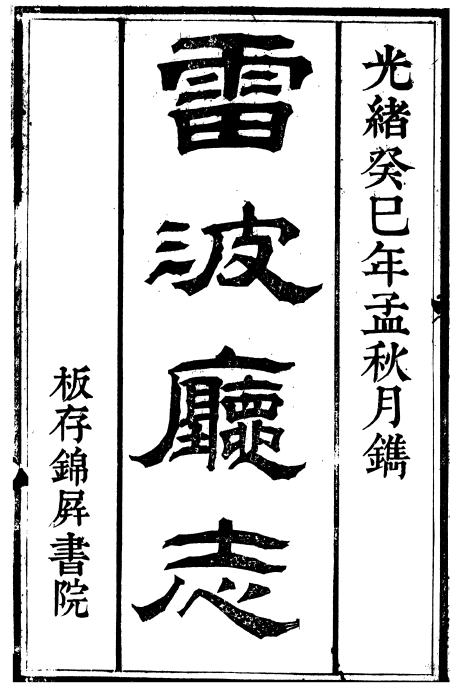 光緒癸巳年孟秋月鐫
雷波廳志
板存錦屏書院